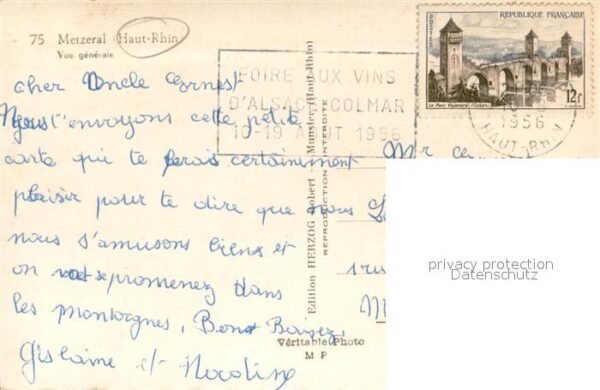 75 Metzeral (Haut-Rhin)
Vue générale
cher Oncle Ernest
Nous t'envoyons cette petite
carte qui te ferais certainement
plaisir pour te dire que nous
nous s'amusons biens et
on vas promenez dans
les montagnes, Bons Baisez,
Gislaine et
FOIRE AUX VINS
D'ALSACE COLMAR
10-19 AOUT 1956
Edition HERZOG Robert - Munster (Haut-Rhin)
REPRODUCTION INTERDITE
REPUBLIQUE FRANÇAISE
POSTES
Le Pont Valentré (Cahors)
12f
1956
HAUT-RHIN
Mr
privacy protection
Datenschutz
Véritable Photo
M P